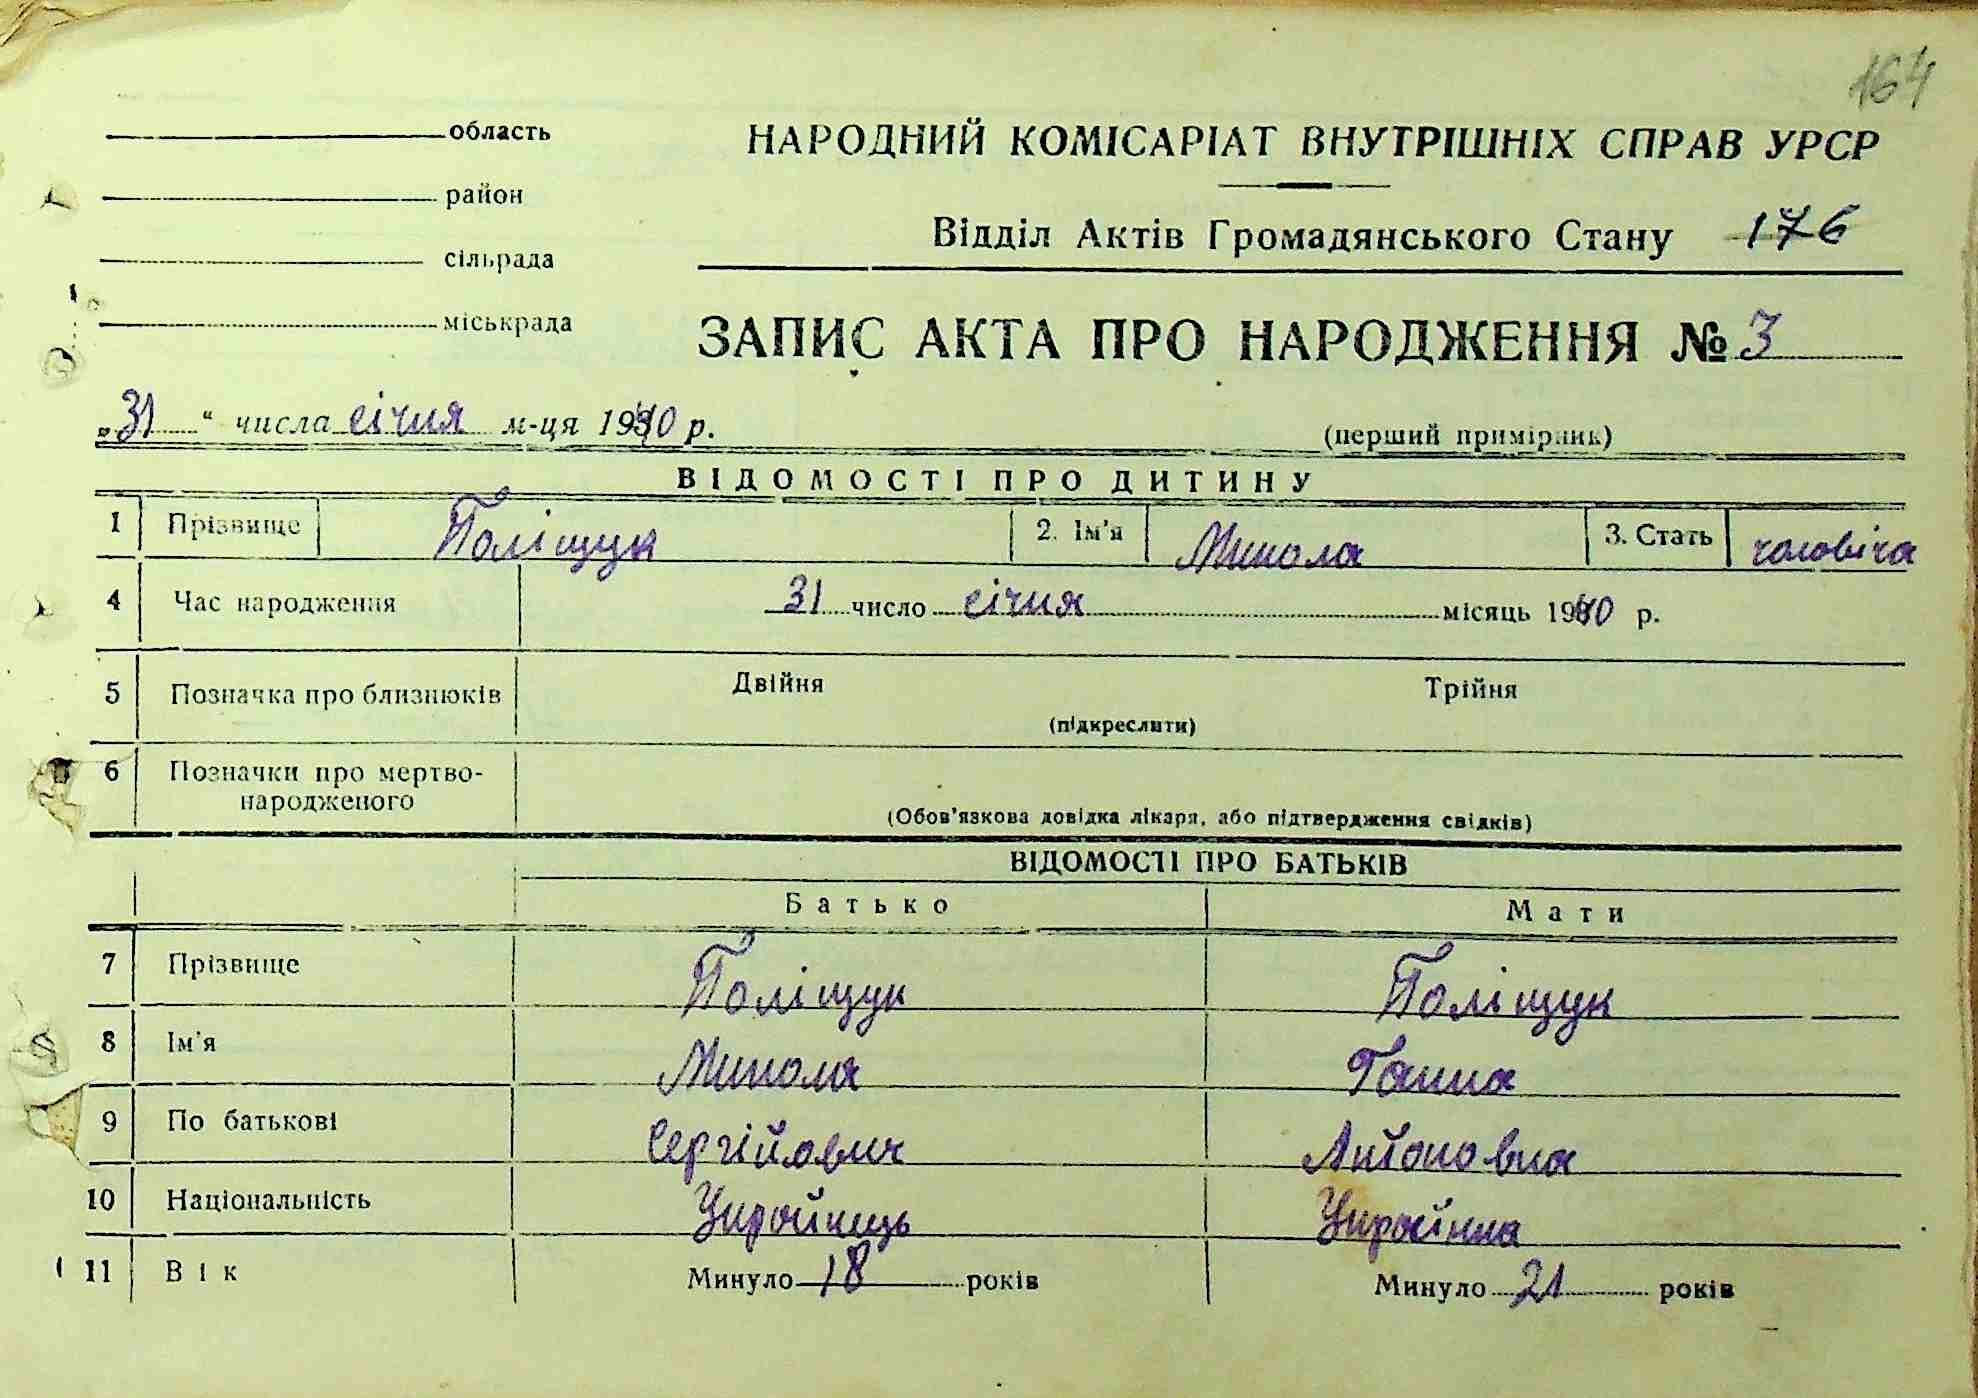 164
область
НАРОДНИЙ КОМІСАРІАТ ВНУТРІШНІХ СПРАВ УРСР
район
Відділ Актів Громадянського Стану 176
сільрада
міськрада
ЗАПИС АКТА ПРО НАРОДЖЕННЯ № 3
„31“ числа січня м-ця 1940 р.
(перший примірник)
ВІДОМОСТІ ПРО ДИТИНУ
1 Прізвище Поліщук 2. Ім'я Микола 3. Стать чоловіча
4 Час народження 31 число січня місяць 1940 р.
5 Позначка про близнюків Двійня Трійня
(підкреслити)
6 Позначки про мертво-
народженого
(Обов'язкова довідка лікаря, або підтвердження свідків)
ВІДОМОСТІ ПРО БАТЬКІВ
Батько Мати
7 Прізвище Поліщук Поліщук
8 Ім'я Микола Ганна
9 По батькові Сергійович Антоновна
10 Національність Українець Українка
11 Вік Минуло 18 років Минуло 21 років